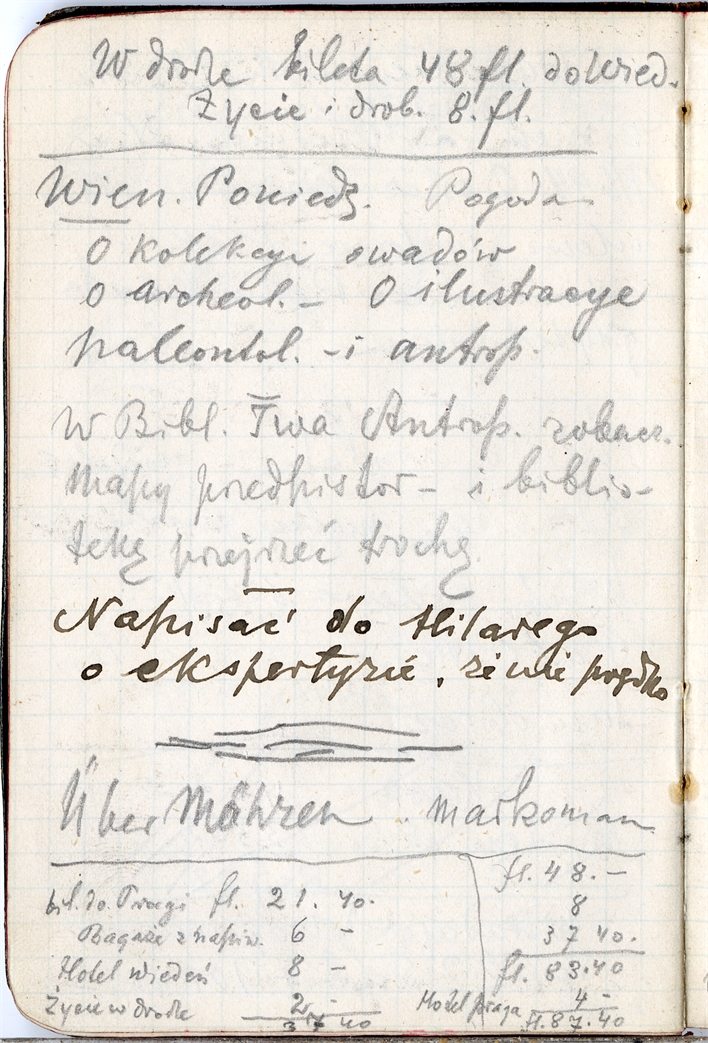 W drodze bileta 48 fl. do Wied.
Życie i drob. 8. fl.
Wien. Poniedz. Pogoda
O kolekcyi owadów
O archeol. – O ilustracye
paleontol. – i antrop.
W Bibl. Twa Antrop. zobacz.
mapy przedhistor – i biblio–
tekę przejrzeć trochę.
Napisać do Hilarego
o ekspertyzie, że nie prędko
Über Mähren . Markoman
fl. 48. –
bil. do Pragi fl. 21. 40. 8
Bagaże z napiw. 6 – 37 40.
Hotel wiedeń 8 – fl. 83.40
Życie w drodze 2 – Hotel praga 4 –
37 40 fl. 87.40